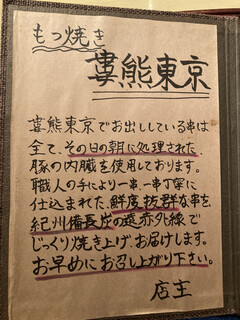 もつ焼き
婁熊東京
婁熊東京でお出ししている串は
全て、その日の朝に処理された
豚の内臓を使用しております。
職人の手により一串、一串丁寧に
仕込まれた、鮮度抜群な串を
紀州備長炭の遠赤外線で
じっくり焼き上げお届けします。
お早めにお召し上がり下さい。
店主